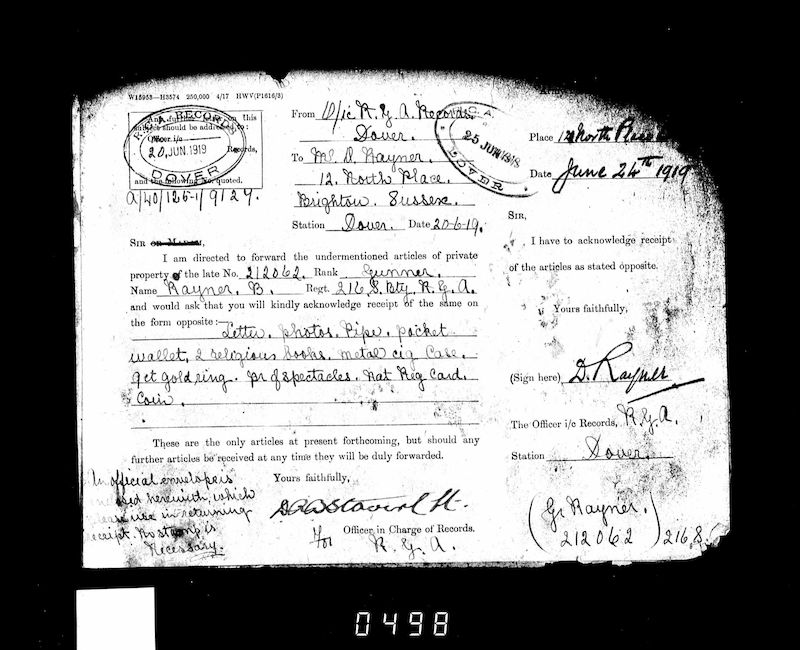 W15953—H3574 250,000 4/17 HWV(P1616/3)
Any further on this
subject should be addressed to:
Officer i/c
Records,
and the following No. quoted.
R.G.A. RECORDS
20 JUN. 1919
DOVER
a/40/125-1/9129.
From O/ic R. G. A. Records.
Dover.
To Mr. D. Rayner.
12. North Place.
Brighton. Sussex.
Station Dover. Date 20-6-19.
SIR OR MADAM,
I am directed to forward the undermentioned articles of private
property of the late No. 212062. Rank Gunner.
Name Rayner. B. Regt. 216. S. Bty. R. G. A.
and would ask that you will kindly acknowledge receipt of the same on
the form opposite:—
Letter. photos. Pipe. pocket
wallet. 2 religious books. metal cig case.
9ct gold ring. pr of spectacles. Nat Reg Card.
Coin.
These are the only articles at present forthcoming, but should any
further articles be received at any time they will be duly forwarded.
Yours faithfully,
Officer in Charge of Records.
For R. G. A.
An official envelope is
herewith, which
please use in returning
receipt. No stamp is
Necessary.
R.G.A.
25 JUN 1919
DOVER
Place 12 North Place
Date June 24th 1919
SIR,
I have to acknowledge receipt
of the articles as stated opposite.
Yours faithfully,
(Sign here) D. Rayner
The Officer i/c Records, R.G.A.
Station Dover.
(Gr Rayner.
212062) 216.S.
0498